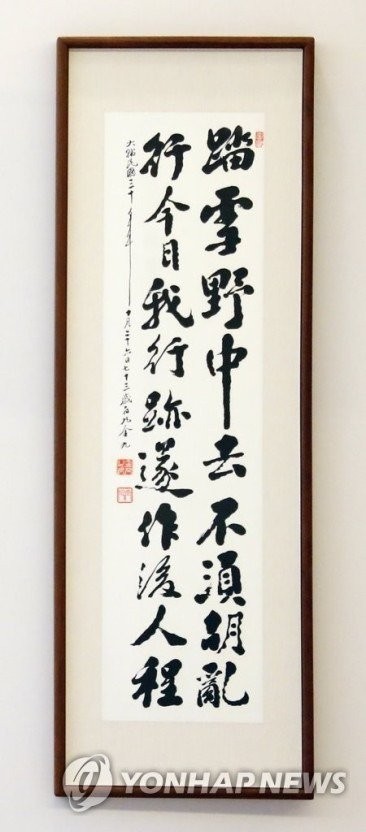 踏雪野中去不須胡亂
行今日我行跡遂作後人程
大韓民國三十年十月二十六日七十三歲白凡金九
YONHAP NEWS